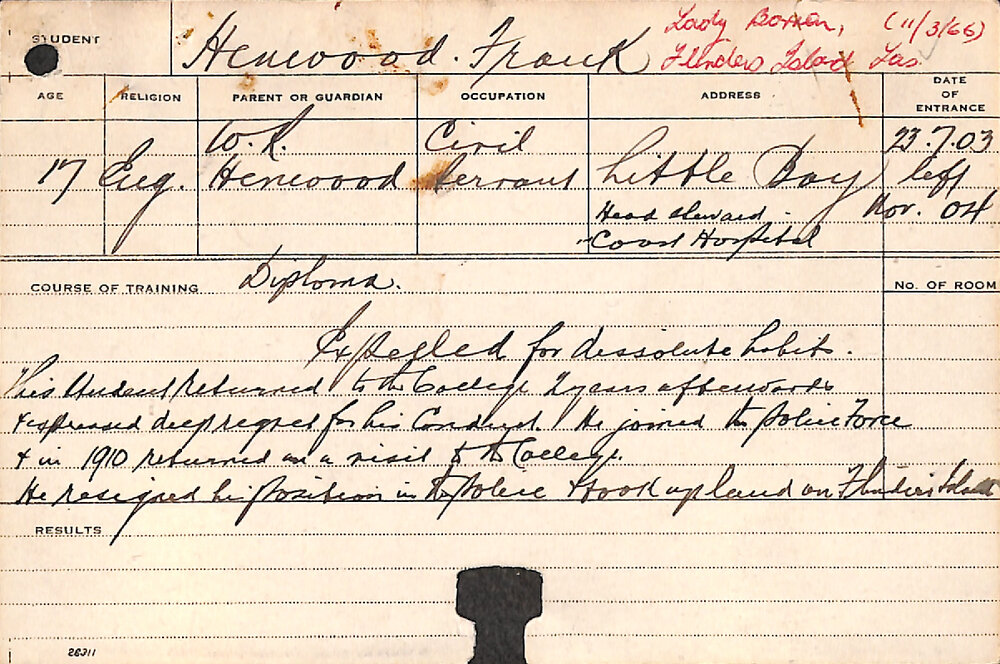 STUDENT Henwood. Frank Lady Barron, (11/3/66)
Flinders Island Tas
AGE RELIGION PARENT OR GUARDIAN OCCUPATION ADDRESS DATE OF ENTRANCE
W. R. Civil 23.7.03
17 Eng. Henwood Servant Little Bay left
Head Steward - Nov. 04
Coast Hospital
COURSE OF TRAINING Diploma. No. OF ROOM
Expelled for dissolute habits.
This Student returned to the College 2 years afterwards
& expressed deep regret for his Conduct. He joined the Police Force
& in 1910 returned on a visit to the College.
He resigned his position in the police & took up land on Flinders Island
RESULTS
26311